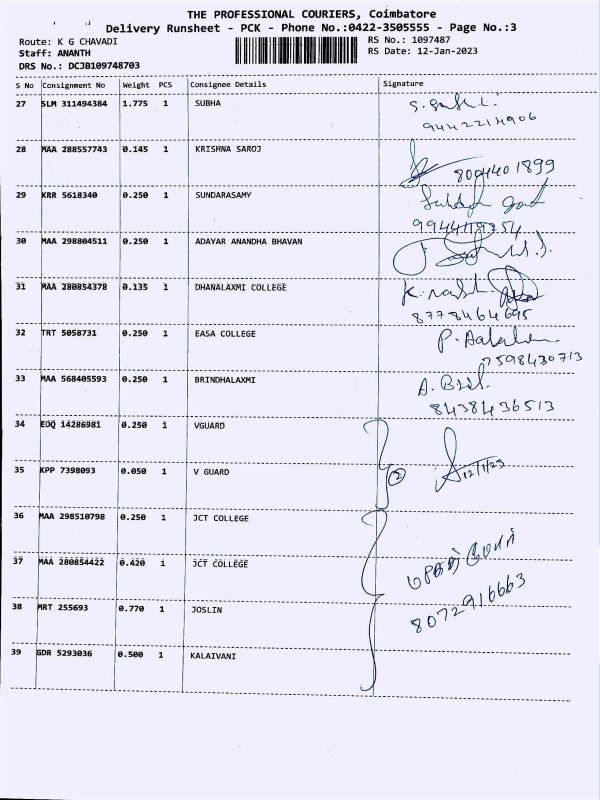 THE PROFESSIONAL COURIERS, Coimbatore
Delivery Runsheet - PCK - Phone No.:0422-3505555 - Page No.:3
Route: K G CHAVADI
RS No.: 1097487
Staff: ANANTH
RS Date: 12-Jan-2023
DRS No.: DCJB109748703
S No Consignment No Weight PCS Consignee Details Signature
27 SLM 311494384 1.775 1 SUBHA
28 MAA 288557743 0.145 1 KRISHNA SAROJ
8094401899
29 KRR 5618340 0.250 1 SUNDARASAMY
30 MAA 298804511 0.250 1 ADAYAR ANANDHA BHAVAN
31 MAA 280854378 0.135 1 DHANALAXMI COLLEGE
8778464695
32 TRT 5058731 0.250 1 EASA COLLEGE
7598430713
33 MAA 568405593 0.250 1 BRINDHALAXMI
8438436513
34 EDQ 14286981 0.250 1 VGUARD
35 KPP 7398093 0.050 1 V GUARD 2 12/1/23
36 MAA 298510798 0.250 1 JCT COLLEGE
37 MAA 280854422 0.420 1 JCT COLLEGE
38 MRT 255693 0.770 1 JOSLIN 8072916663
39 GDR 5293036 0.500 1 KALAIVANI